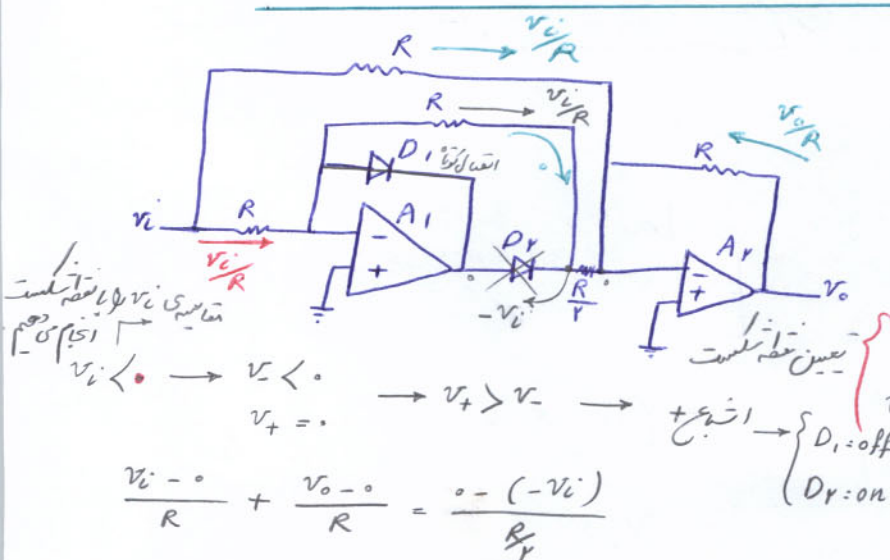 R → v_i/R
R → v_i/R
D₁ اتصال کوتاه
v_o/R
R
v_i
R
v_i/R
A₁
−
+
D۲
۰
−v_i
R/۲
۰
A۲
−
+
v_o
v_i با نقطه شکست
انجام می دهیم
تعیین نقطه شکست
v_i < ۰ → v₋ < ۰
v₊ = ۰
→ v₊ > v₋ → اشباع +
→ { D₁ : off
D۲ : on
(v_i − ۰)/R + (v_o − ۰)/R = (۰ − (−v_i))/(R/۲)